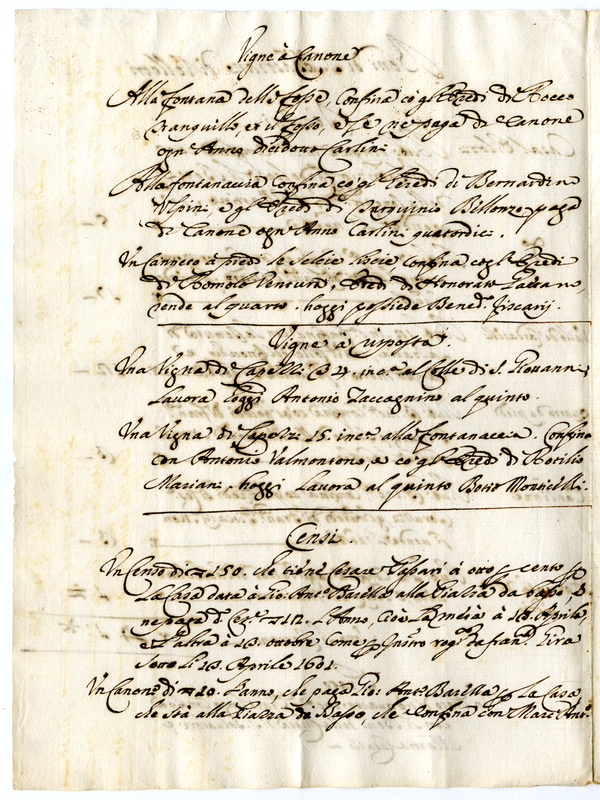 Vigne à Canone
Alla fontana delle fosse, Confina cò gl'Eredi di Rocco
Tranquillo, et il fosso, e se ne paga di Canone
ogn'Anno dicidotto Carlini
Alla fontanaccia Confina cò gl'Eredi di Bernardin
Vlpini e gl'Eredi di Tarquinio Billonzo paga
di Canone ogn'Anno Carlini quatordici.
Un Canneto à piedi le Selcie liscie Confina co gl'Eredi
di Romolo Ventura, Eredi di Honorato Gaetano,
rende al quarto. hoggi possiede Bened.º Ziscarij.
Vigne à risposta.
Una Vigna di Capelli 34. inc.ª al Colle di S. Giovanni,
Lavora hoggi Antonio Zaccagnino al quinto.
Una Vigna di Capelzi 15. inc.ª alla fontanaccia. Confina
con Antonio Valmontono, e cò gl'Eredi di Rotilio
Mariani, hoggi Lavora al quinto Monticelli.
Censi.
Un Censo di 150. che tiene Cesare à otto p cento p
La Casa data à Gio: Ant.º Barella alla Piazza da basso,
ne paga d. Ces.e 12. L'Anno, Cioè La metà à 18. Aprile,
et l'altra à 18. ottobre Come p Instro rog.º da fran.º
Sotto li 18. Aprile 1601.
Un Canone di 10. l'anno, che paga Gio: Ant.º Barella p La Casa
che stà alla Piazza di Basso, che Confina con Marc'Ant.º